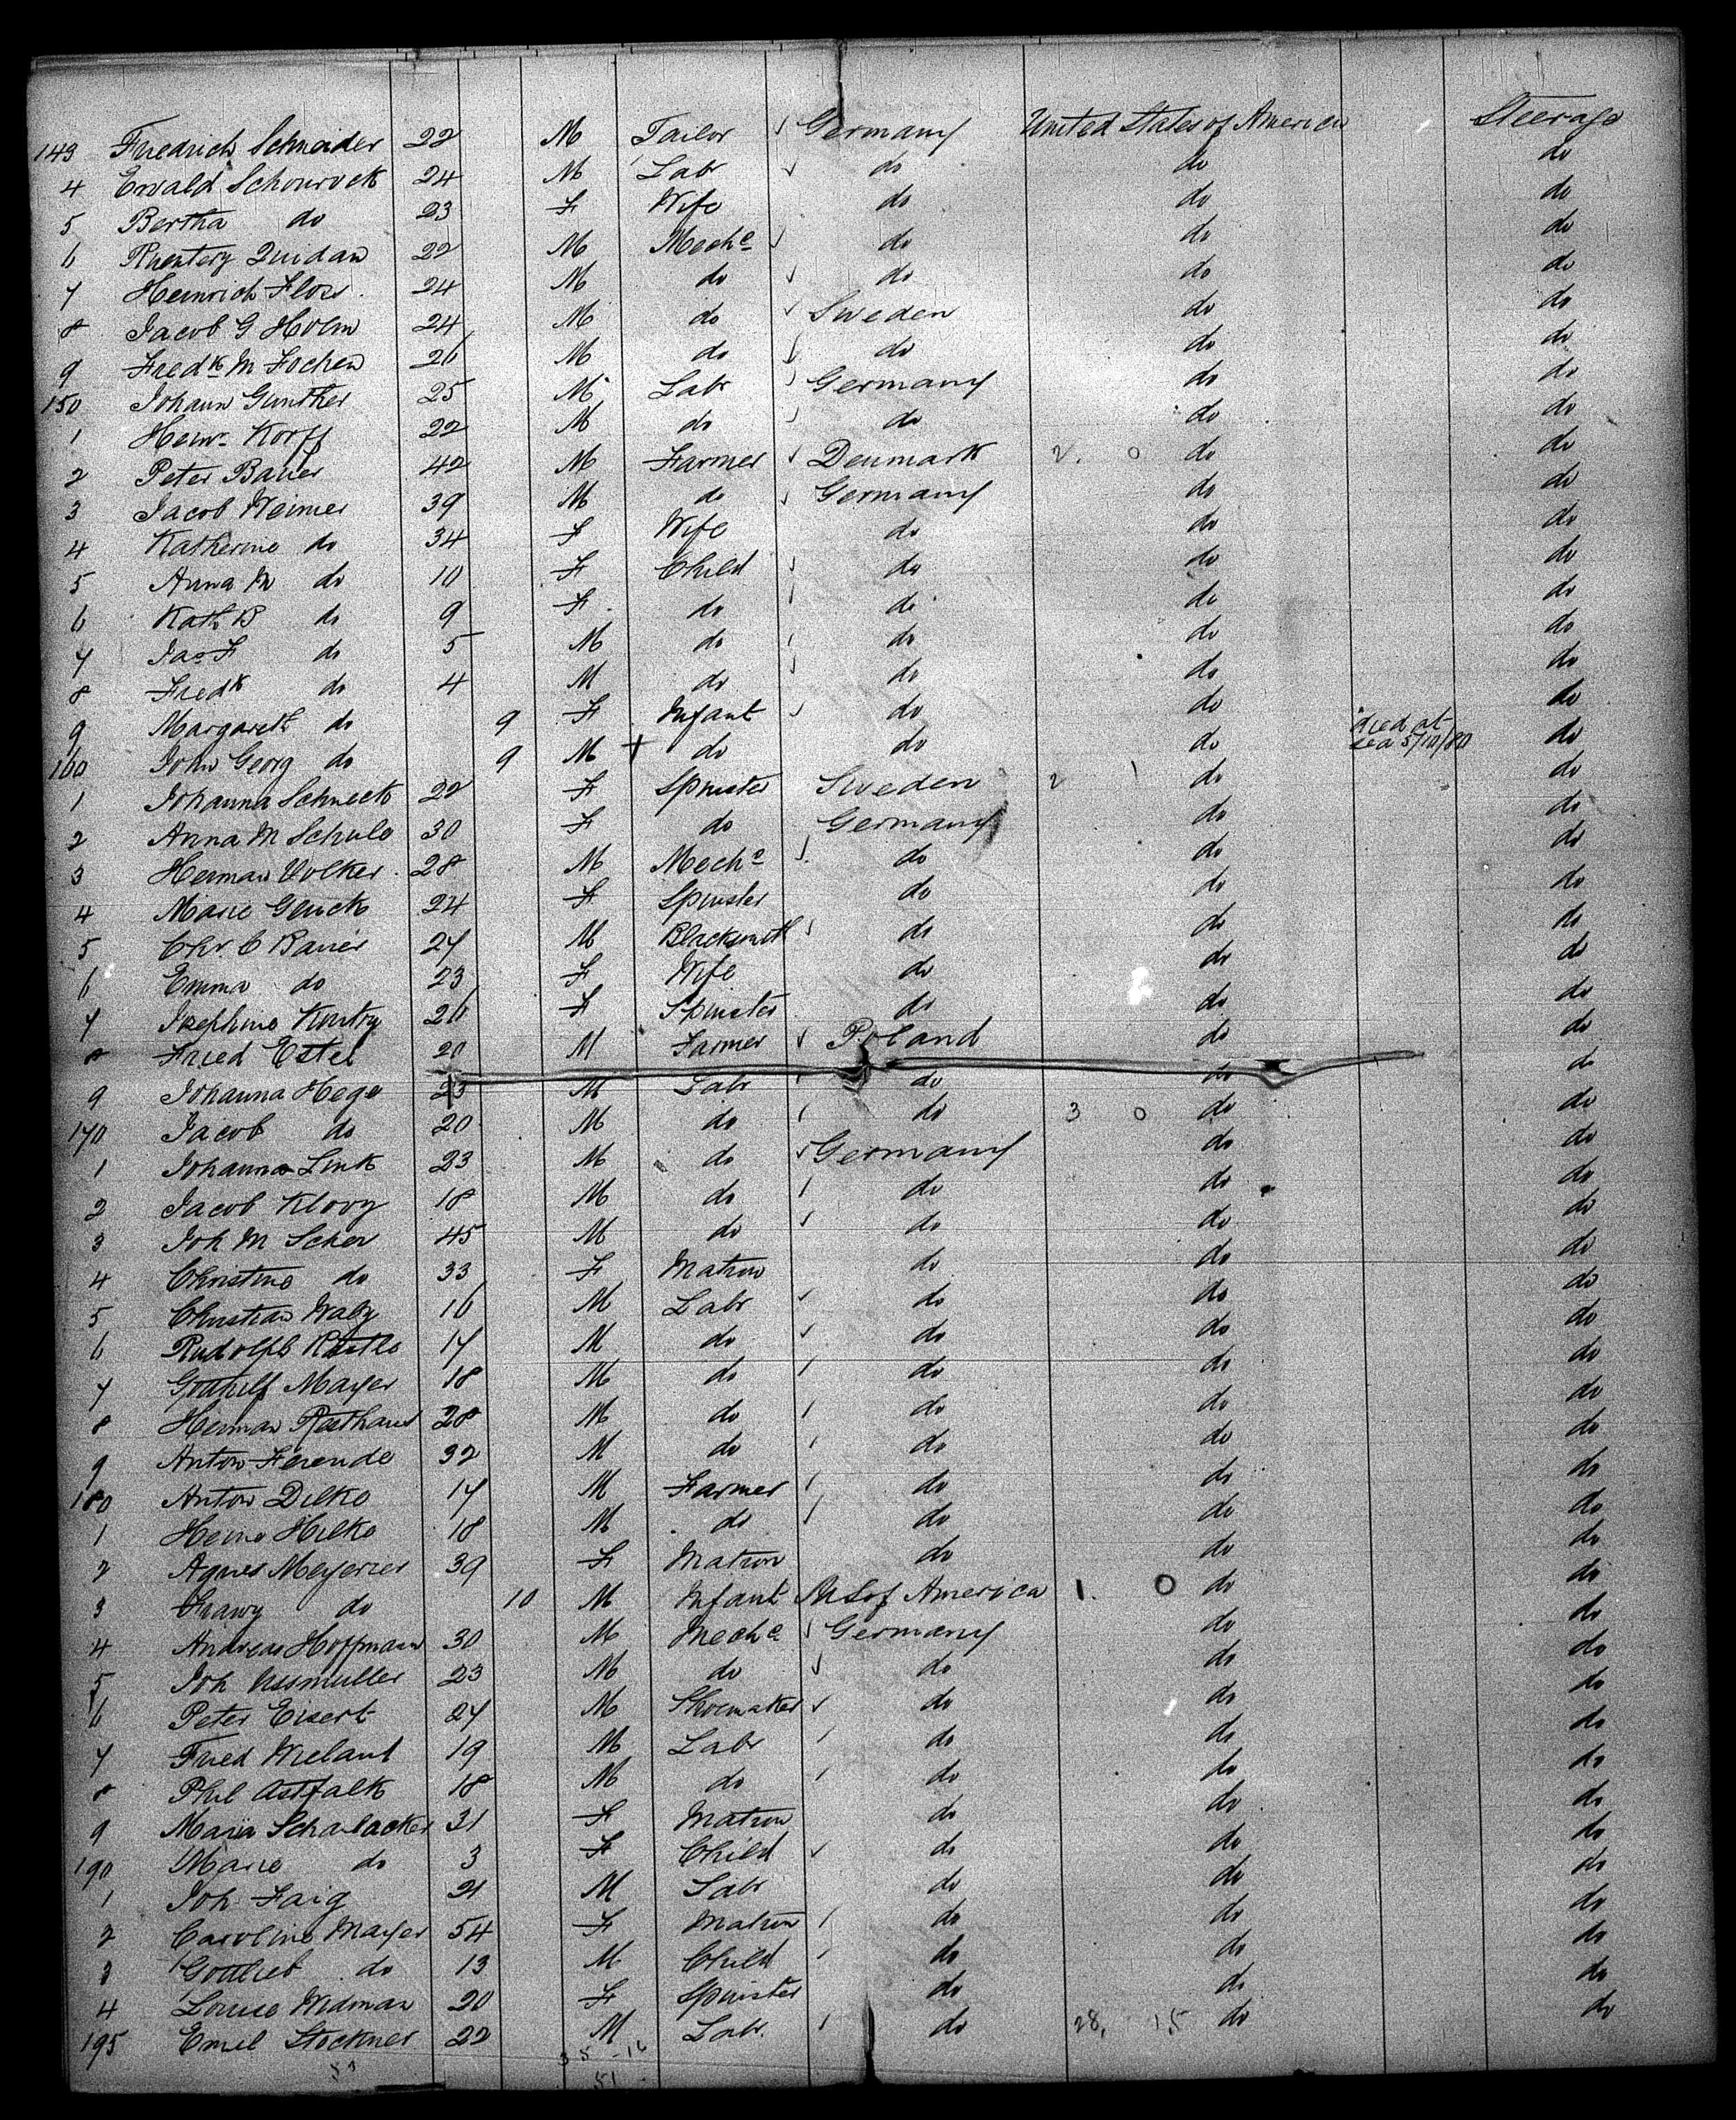 143 Friedrich Schneider 22 M Tailor Germany United States of America Steerage
4 Ewald Schourock 24 M Labr do do do
5 Bertha do 23 F Wife do do do
6 Quidan 22 M Meche do do do
7 Heinrich Flor 24 M do do do do
8 Jacob G Holm 24 M do Sweden do do
9 Fredk M Fochen 26 M do do do do
150 Johann Gunther 25 M Labr Germany do do
1 Heinr Korff 22 M do do do do
2 Peter Bauer 42 M Farmer Denmark 2. 0 do do
3 Jacob Weimer 39 M do Germany do do
4 Katherine do 34 F Wife do do do
5 Anna M do 10 F Child do do do
6 Kath B do 9 F do do do do
7 Jas F do 5 M do do do do
8 Fredk do 4 M do do do do
9 Margareth do 9 F Infant do do do
160 John Georg do 9 M + do do do died at sea 5/10/80 do
1 Johanna Schneck 22 F Spinster Sweden 2 1 do do
2 Anna M Schulo 30 F do Germany do do
3 Herman Volker 28 M Meche do do do
4 Marie Gluck 24 F Spinster do do do
5 Chr. C Bauer 27 M Blacksmith do do do
6 Emma do 23 F Wife do do do
7 Josephine Kontry 26 F Spinster do do do
8 Fried Estel 20 M Farmer Poland do do
9 Johanna Hege 23 M Labr do do do
170 Jacob do 20 M do do 3 0 do do
1 Johanna Link 23 M do Germany do do
2 Jacob Kloog 18 M do do do do
3 Joh M Scher 45 M do do do do
4 Christine do 33 F Matron do do do
5 Christian Walz 16 M Labr do do do
6 Rudolph 17 M do do do do
7 Gotthilf Mayer 18 M do do do do
8 Herman Resthaus 28 M do do do do
9 Anton Ferende 32 M do do do do
180 Anton Dilko 17 M Farmer do do do
1 Heino Hilko 18 M do do do do
2 Agnes Meyerzer 39 F Matron do do do
3 Franz do 10 M Infant US of America 1. 0 do do
4 Andreas Hoffmann 30 M Meche Germany do do
5 Joh Assmuller 23 M do do do do
6 Peter Eisert 27 M Shoemaker do do do
7 Fried Wielant 19 M Labr do do do
8 Phil Astfalk 18 M do do do do
9 Maria Schabacker 31 F Matron do do do
190 Marie do 3 F Child do do do
1 Joh Faig 21 M Labr do do do
2 Caroline Mayer 54 F Matron do do do
3 Gottlieb do 13 M Child do do do
4 Louise Widman 20 F Spinster do do do
195 Emil Stockner 22 M Labr. do 28, 15 do do
35 - 16
51